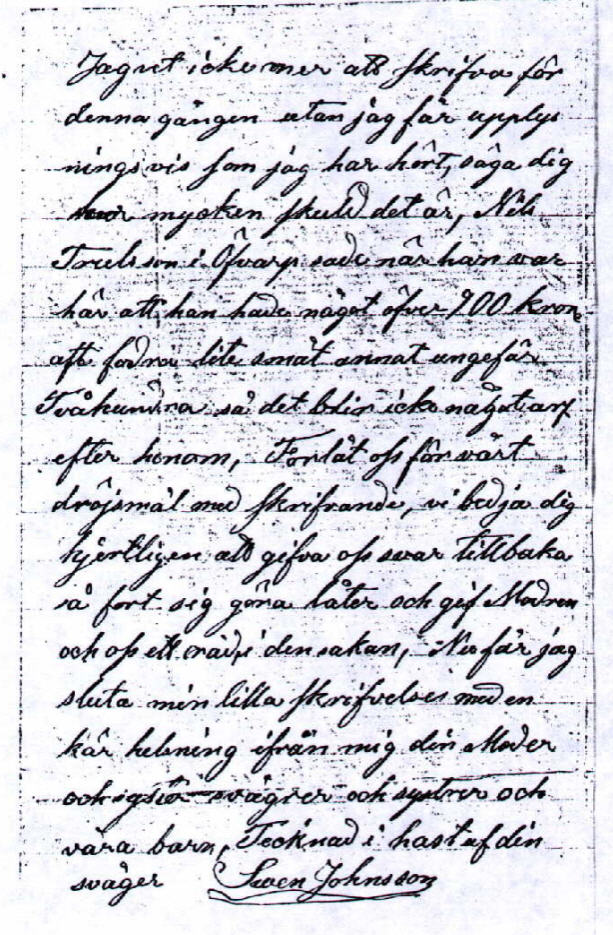 Jag vet icke mer att skrifva för
denna gången utan jag får upplys
ningsvis som jag har hört, säga dig
hur mycken skuld det är, Nils
Truls son i Öfvarp sade när han var
här att han hade något öfver 900 kron
att fodra lite småt annat ungefär
Tvåhundra så det blir icke något arf
efter honom, Förlåt oss för vårt
dröjsmål med skrifvande, vi bedja dig
hjertligen att gifva oss svar tillbaka
så fort sig göra låter och gif Modren
och oss ett råd i den sakan, Nu får jag
sluta min lilla skrifvelse med en
kär helsning ifrån mig din Moder
och svågrer och systrer och
våra barn, Tecknad i hast af din
svåger Swen Johnsson